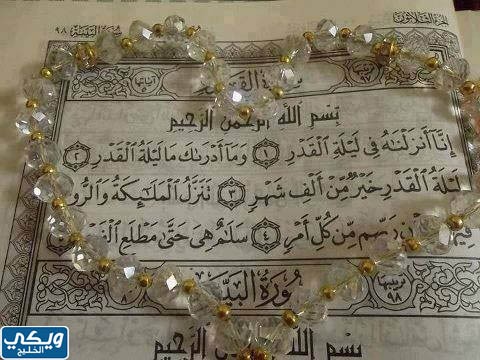 الجزء الثلاثون
سورة البينة ٩٨
سورة القد
بِسْمِ اللَّهِ الرَّحْمَٰنِ الرَّحِيمِ
إِنَّا أَنزَلْنَاهُ فِي لَيْلَةِ الْقَدْرِ ١ وَمَا أَدْرَاكَ مَا لَيْلَةُ الْقَدْرِ ٢
لَيْلَةُ الْقَدْرِ خَيْرٌ مِّنْ أَلْفِ شَهْرٍ ٣ تَنَزَّلُ الْمَلَائِكَةُ وَالرُّو
فِيهَا رَبِّهِم مِّن كُلِّ أَمْرٍ ٤ سَلَامٌ هِيَ حَتَّىٰ مَطْلَعِ
ترتيبها ٩٨
سُورَةُ الْبَيِّ
٨
بِسْمِ اللَّهِ الرَّحْمَٰنِ الرَّحِيمِ
ويكي
الخليج